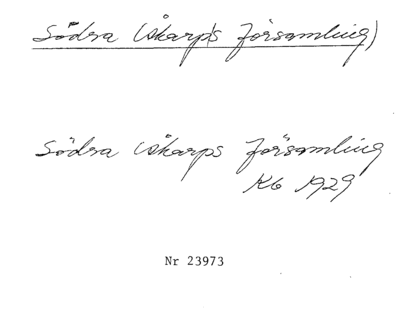 Södra Åkarps församling)
Södra Åkarps Församling
K6 1929
Nr 23973